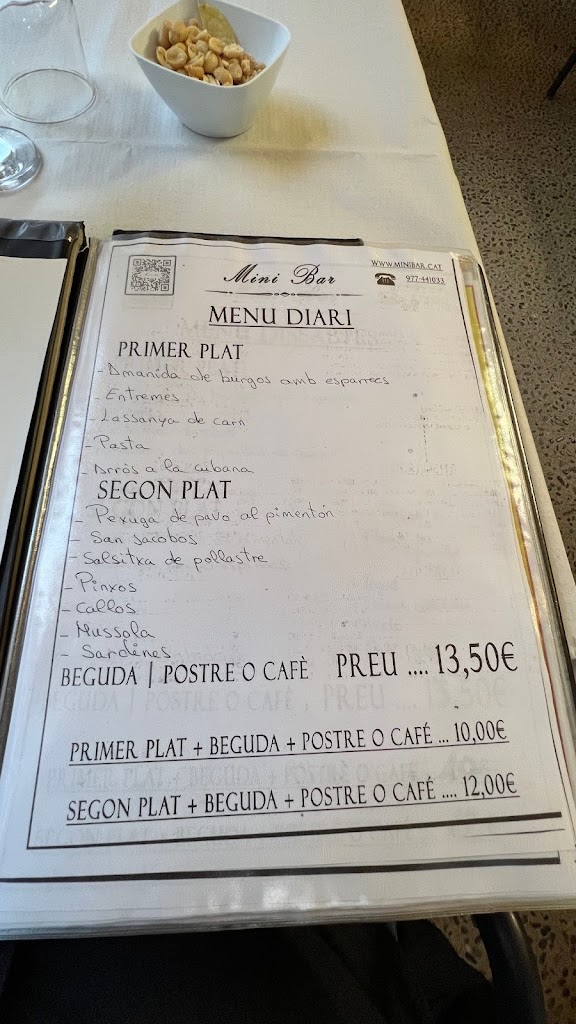 Mini Bar
WWW.MINIBAR.CAT
977-441033
MENU DIARI
PRIMER PLAT
- Amanida de burgos amb esparrecs
- Entremes
- Lassanya de carn
- Pasta
- Arròs a la cubana
SEGON PLAT
- Pexuga de pavo al pimentón
- San Jacobos
- Salsitxa de pollastre
- Pinxos
- Callos
- Mussola
- Sardines
BEGUDA | POSTRE O CAFÈ PREU .... 13,50€
PRIMER PLAT + BEGUDA + POSTRE O CAFÉ ... 10,00€
SEGON PLAT + BEGUDA + POSTRE O CAFÉ .... 12,00€